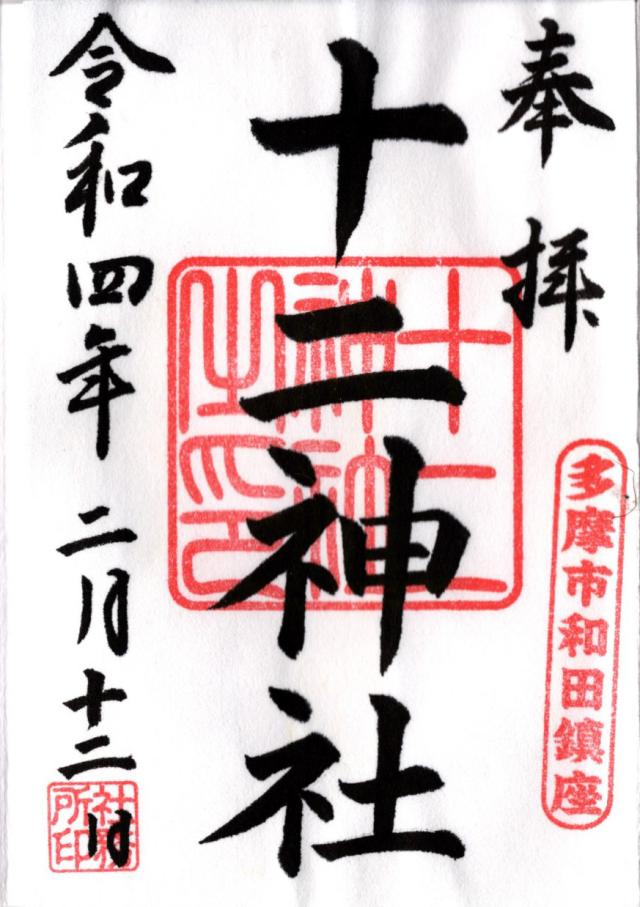 奉拝
多摩市和田鎮座
十二神社
十二神社之印
令和四年二月十二日
社務所印